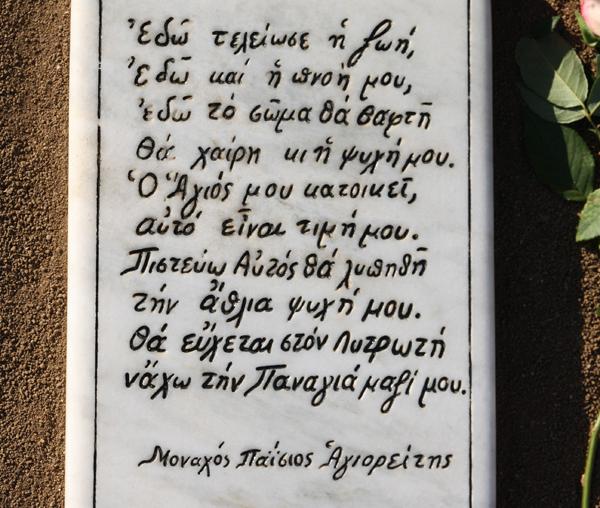 Ἐδῶ τελείωσε ἡ ζωή,
Ἐδῶ καί ἡ πνοή μου,
ἐδῶ τό σῶμα θά θαρτῆ
θά χαίρη κι ἡ ψυχή μου.
Ὁ Ἅγιός μου κατοικεῖ,
αὐτό εἶναι τιμή μου.
Πιστεύω Αὐτός θά λυπηθῆ
τήν ἄθλια ψυχή μου.
Θά εὔχεται στόν Λυτρωτή
νἄχω τήν Παναγιά μαζί μου.
Μοναχός Παΐσιος Ἁγιορείτης